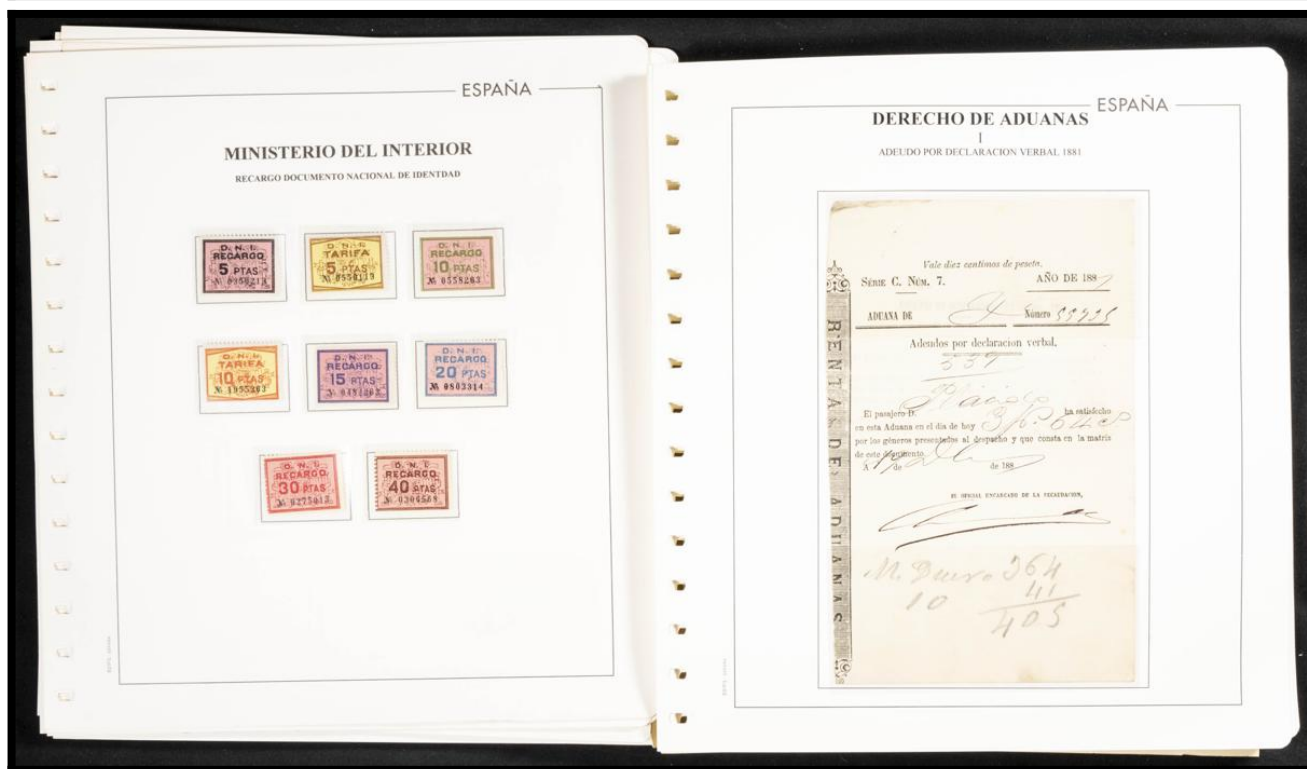 ESPAÑA
MINISTERIO DEL INTERIOR
RECARGO DOCUMENTO NACIONAL DE IDENTDAD
D. N. I.
RECARGO
5 PTAS
D. N. I.
TARIFA
5 PTAS
D. N. I.
RECARGO
10 PTAS
№ 0558263
D. N. I.
TARIFA
10 PTAS
№ 1955263
D. N. I.
RECARGO
15 PTAS
D. N. I.
RECARGO
20 PTAS
№ 0803314
D. N. I.
RECARGO
30 PTAS
D. N. I.
RECARGO
40 PTAS
ESPAÑA
DERECHO DE ADUANAS
I
ADEUDO POR DECLARACION VERBAL 1881
Vale diez centimos de peseta.
SERIE C. NÚM. 7.
AÑO DE 188
ADUANA DE
Número
Adeudos por declaracion verbal.
El pasajero D. ha satisfecho
en esta Aduana en el dia de hoy
por los géneros presentados al despacho y que consta en la matriz
de este documento
A de de 188
EL OFICIAL ENCARGADO DE LA RECAUDACION,
364
10 41
405
RENTA DE ADUANAS